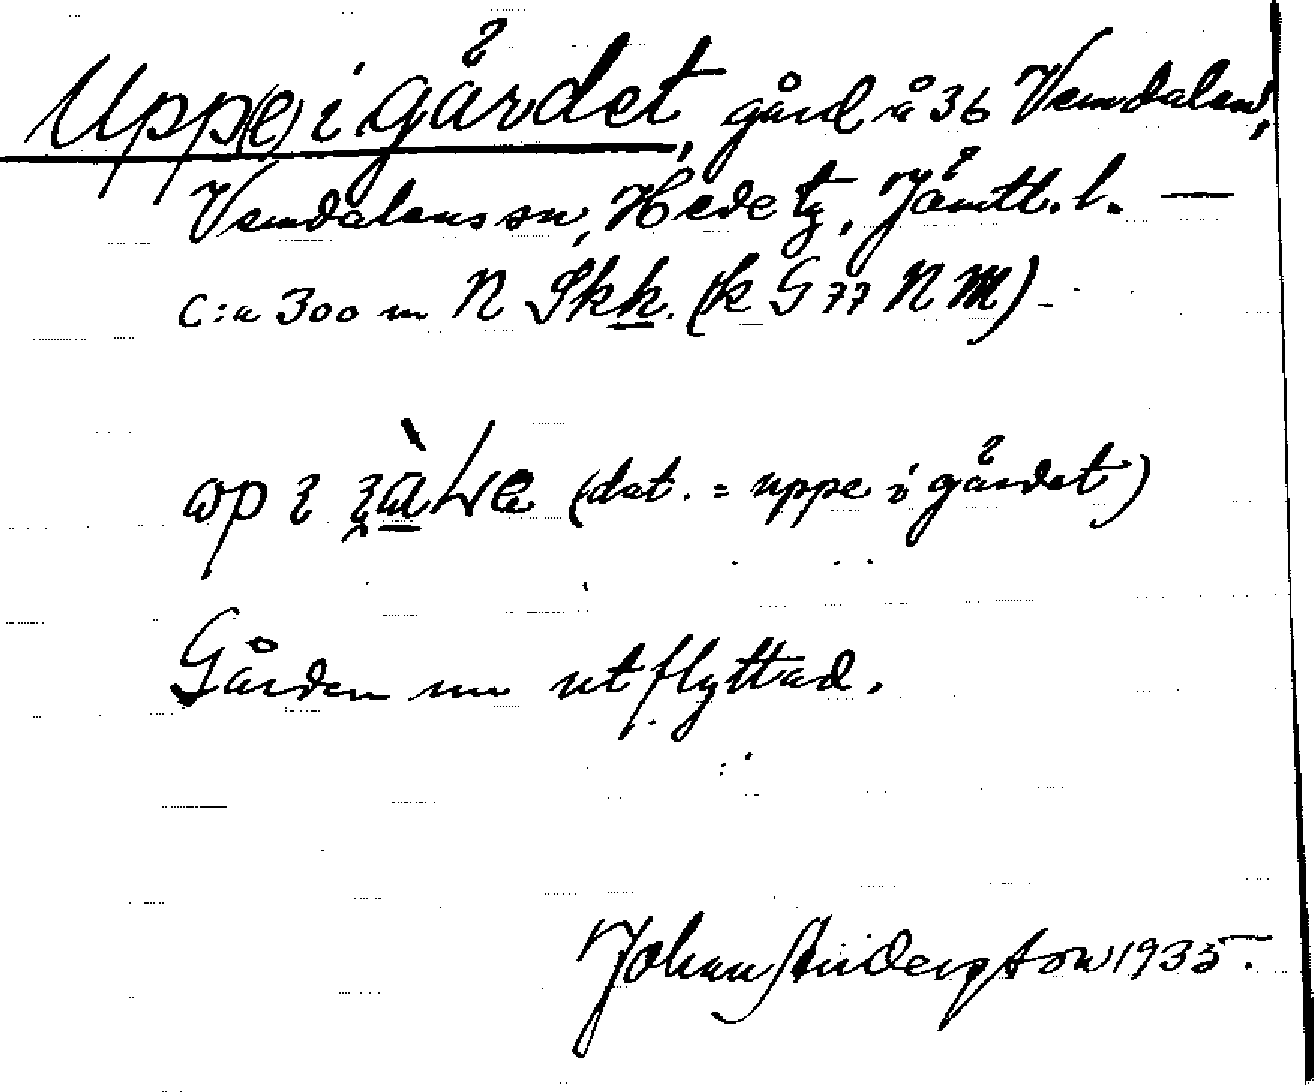 Upp(e) i gårdet, gård å 36 Vemdalen,
Vemdalens sn, Hede tg, Jämtl. l. —
c:a 300 m N Skh. (k G 77 N M)
(dat. = uppe i gårdet)
Gården nu utflyttad.
Johan Anderson 1935.